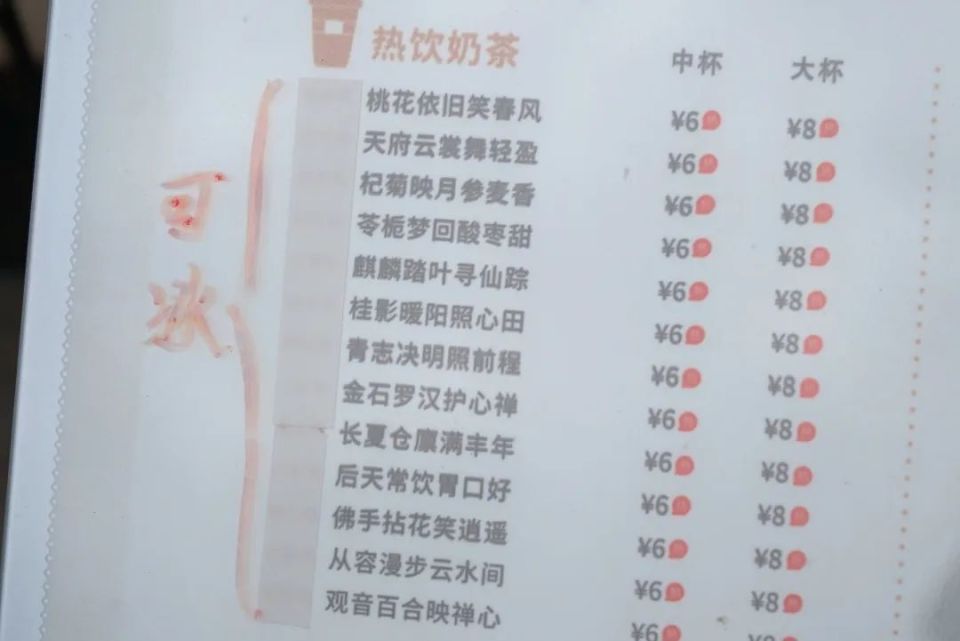 热饮奶茶 中杯 大杯
桃花依旧笑春风 ¥6 ¥8
天府云裳舞轻盈 ¥6 ¥8
杞菊映月参麦香 ¥6 ¥8
苓栀梦回酸枣甜 ¥6 ¥8
麒麟踏叶寻仙踪 ¥6 ¥8
桂影暖阳照心田 ¥6 ¥8
青志决明照前程 ¥6 ¥8
金石罗汉护心禅 ¥6 ¥8
长夏仓廪满丰年 ¥6 ¥8
后天常饮胃口好 ¥6 ¥8
佛手拈花笑逍遥 ¥6 ¥8
从容漫步云水间 ¥6 ¥8
观音百合映禅心 ¥6 ¥8
可
冰